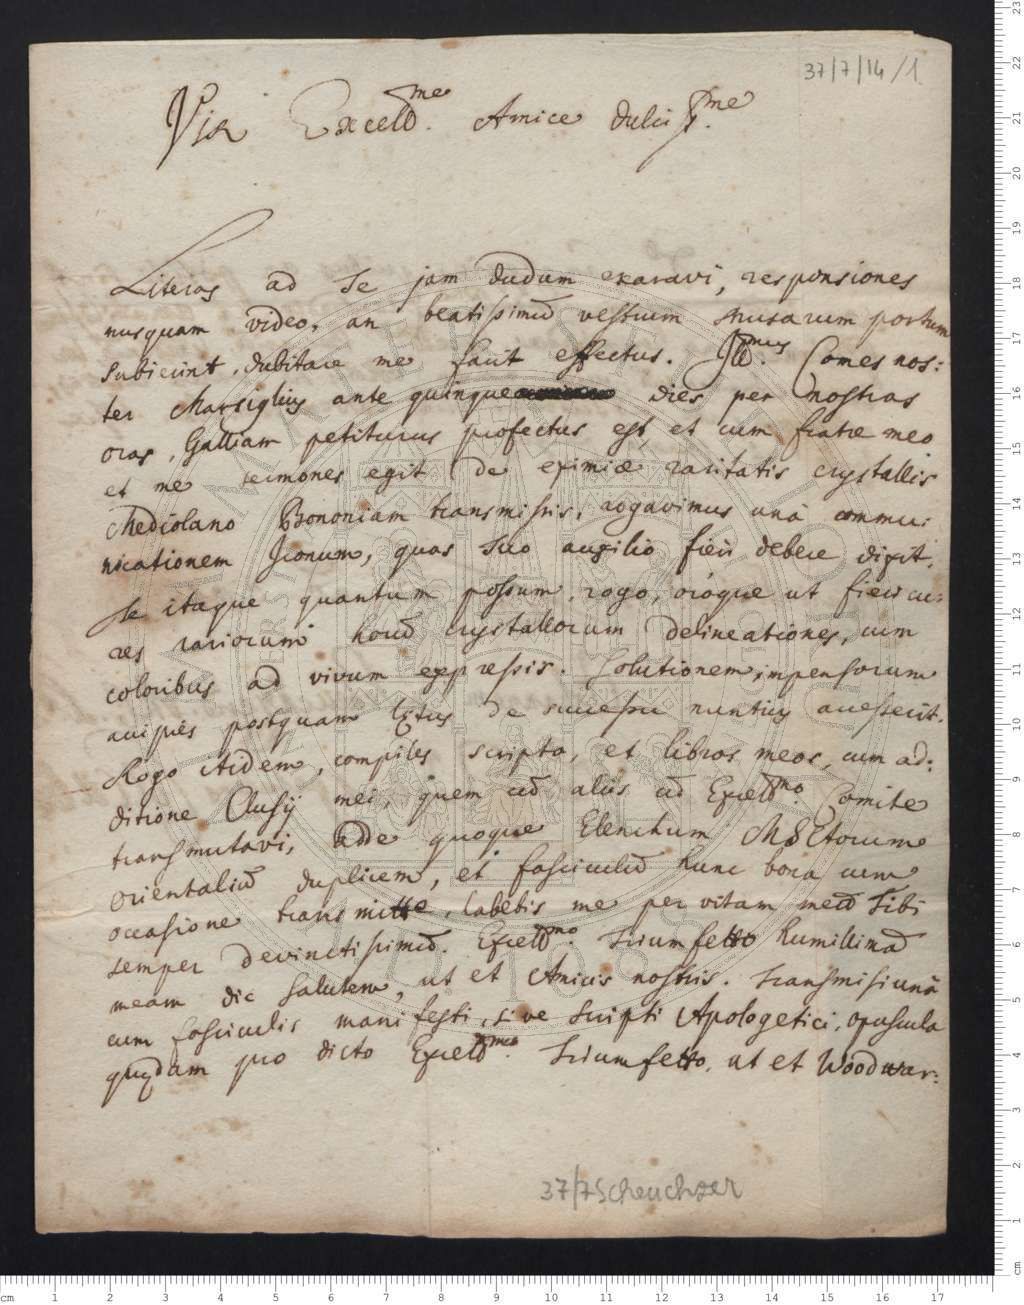 37/7/14/1
Vir Excell.me Amice dulciss.me
Literas ad Te jam dudum exaravi, responsiones
nusquam video, an beatissimū vestrum Musarum portum
subierint, dubitare me facit effectus. Ill.mus Comes nos:
ter Marsiglius ante quinque dies per nostras
oras, Galliam petiturus profectus est, et cum fratre meo
et me sermones egit de eximiæ raritatis crystallis
Mediolano Bononiam transmissis, rogavimus unà commu:
nicationem Iconum, quas suo auxilio fieri debere dixit.
Te itaque quantum possum, rogo, oroque ut fieri cu:
res rariorum horū crystallorum delineationes, cum
coloribus ad vivum expressis. Solutionem impensorum
accipies postquam lætus de successu nuntius accesserit.
Rogo itidem, compiles scripta, et libros meos, cum ad:
ditione Clusij mei, quem cū aliis cū Excell.mo Comite
transmutavi, adde quoque Elenchum MSCtorum
Orientaliū duplicem, et fasciculū hunc bona cum
occasione transmitte, habebis me per vitam meā Tibi
semper devinctissimū. Excell.mo Triumfetto humillimā
meam dic salutem, ut et Amicis nostris. Transmisi unà
cum fasciculis manifesti, sive scripti Apologetici, opuscula
quædam pro dicto Excell.mo Triumfetto, ut et Woodwar:
37/7 Scheuchzer